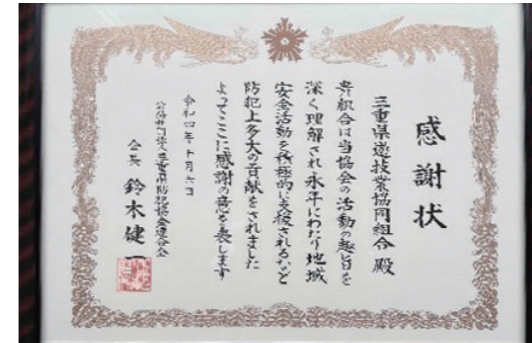 感謝状
三重県遊技業協同組合 殿
貴組合は当協会の活動の趣旨を
深く理解され永年にわたり地域
安全活動を積極的に支援されるなど
防犯上多大の貢献をされました
よってここに感謝の意を表します
令和四年十月六日
公益財団法人三重県防犯協会連合会
会長 鈴木健一